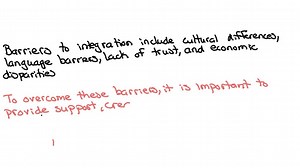 Barriers to integration include cultural differences,
language barriers, lack of trust, and economic
disparities
To overcome these barriers, it is important to
provide support, crer